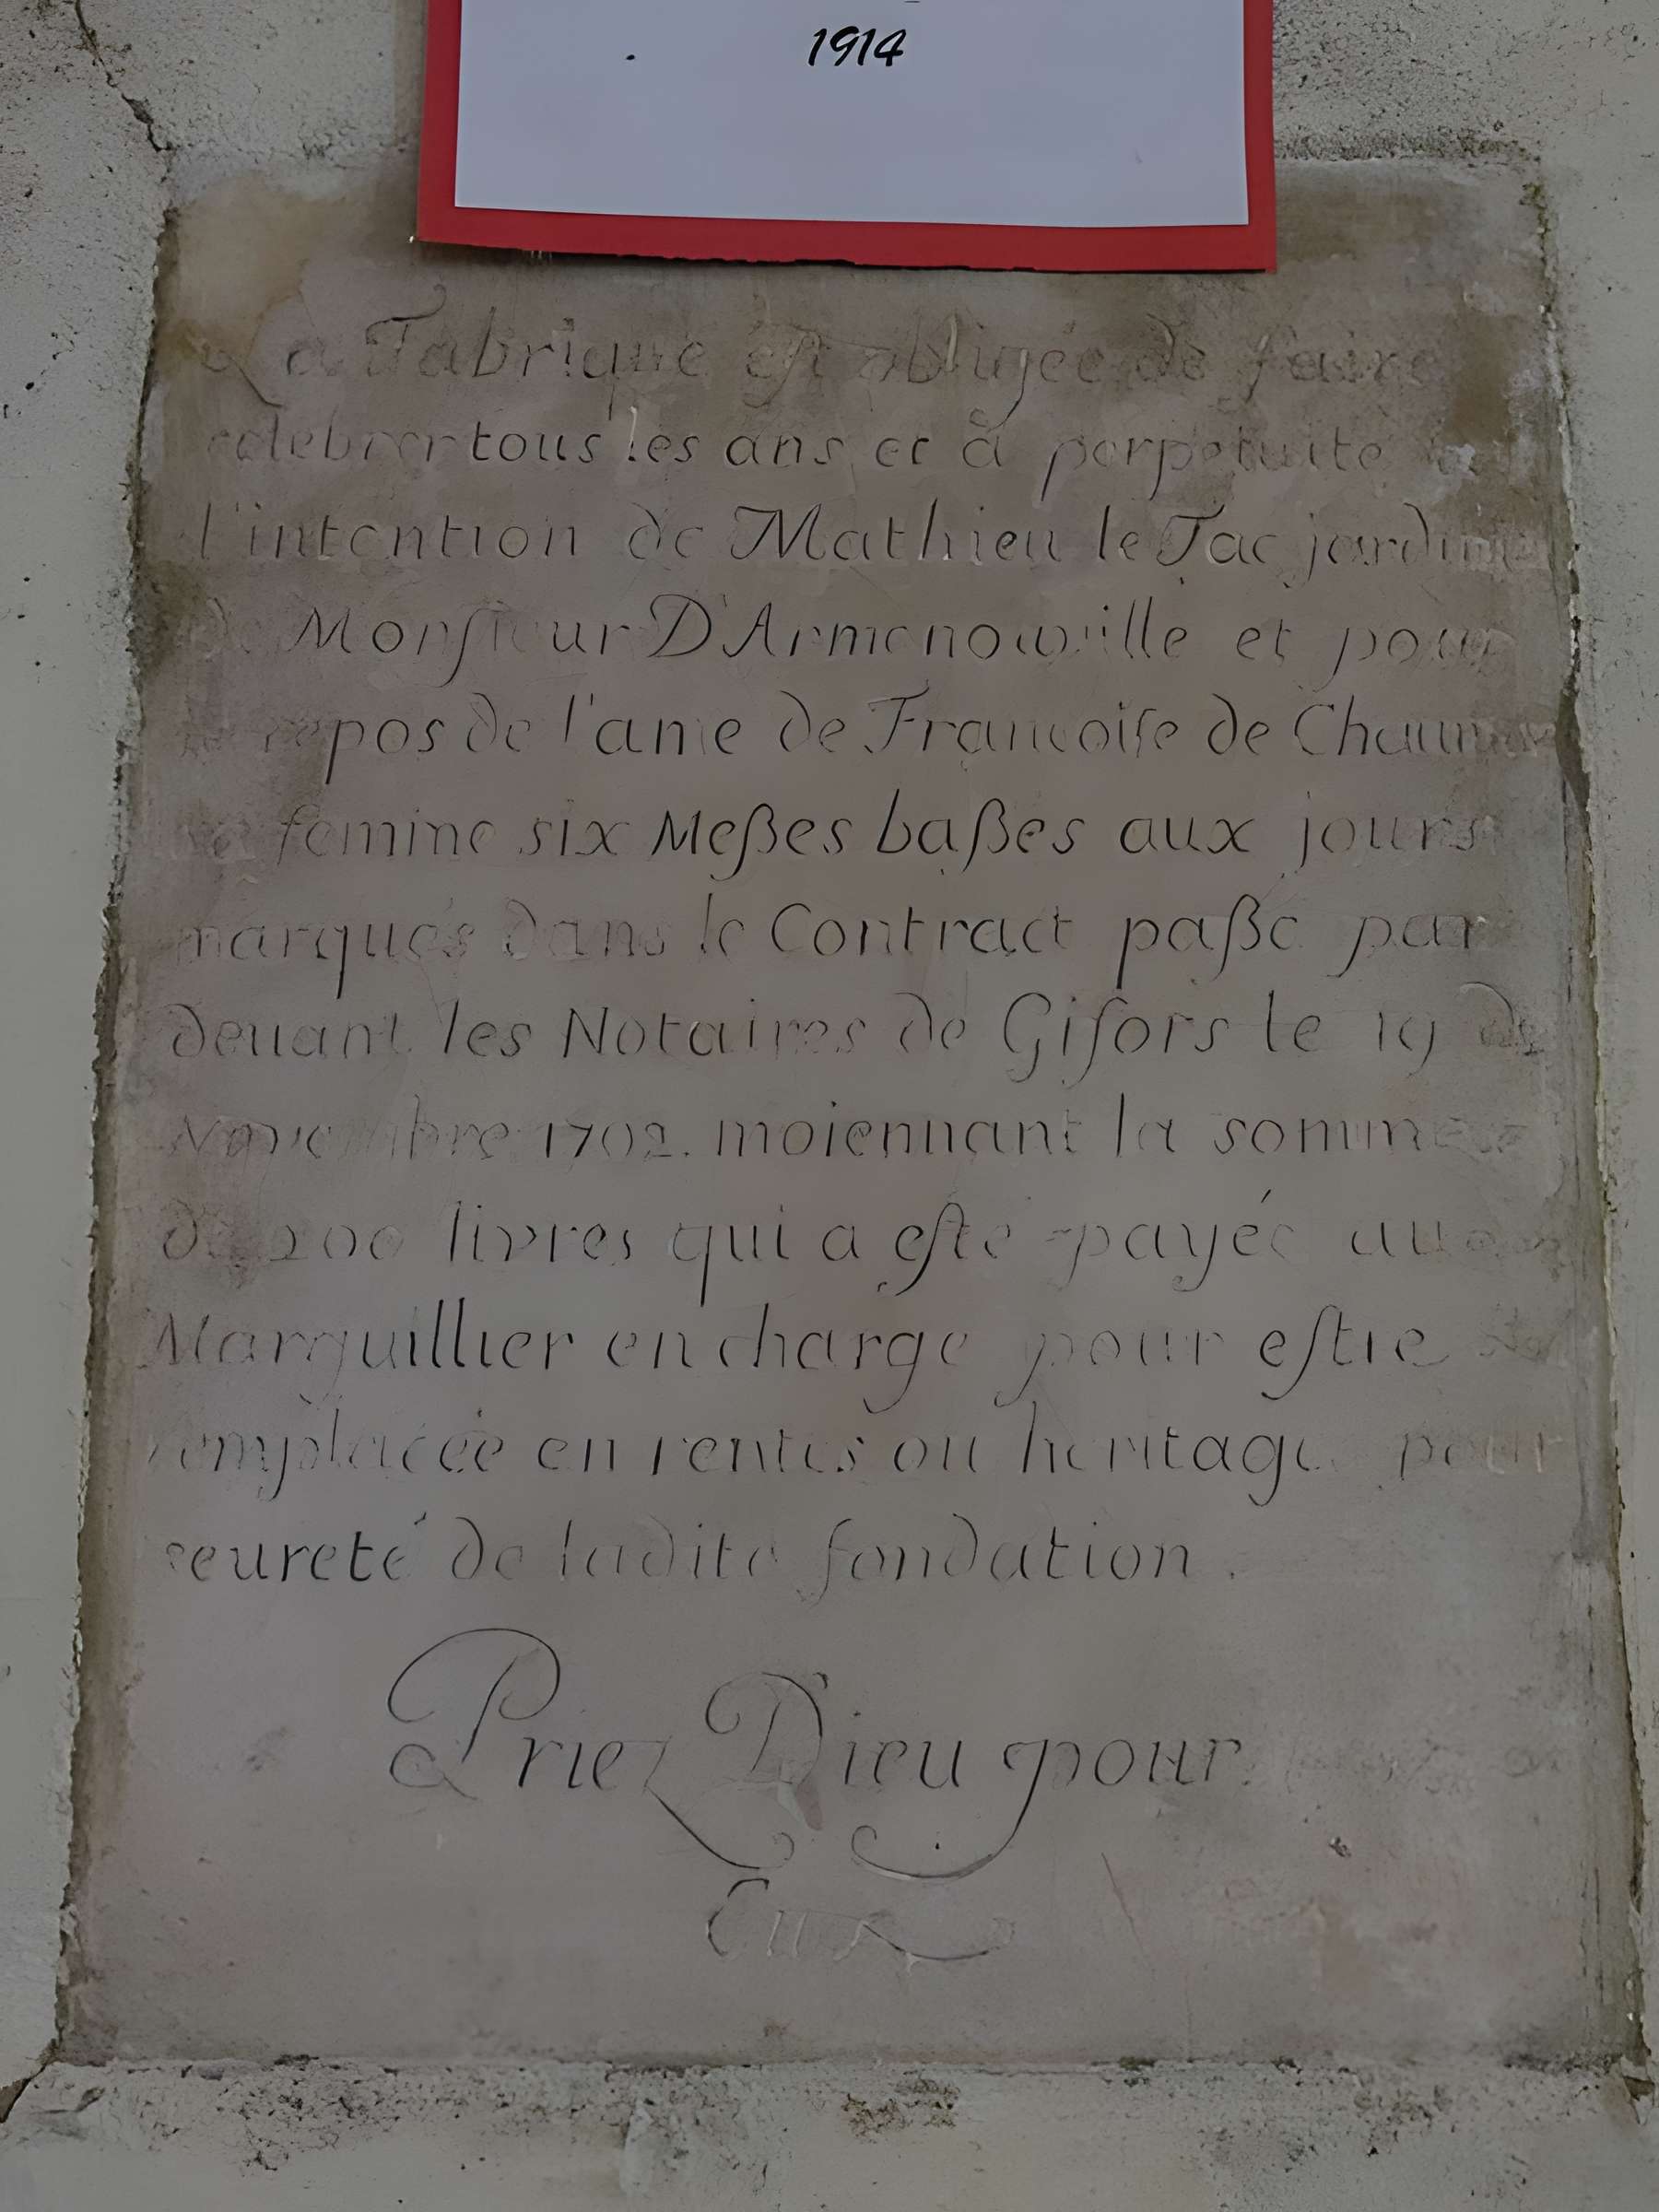 1914
La Fabrique est obligée de faire
celebrer tous les ans et à perpetuité a
l'intention de Mathieu le Tac jardinier
de Monsieur D'Armenonville et pour
le repos de l'ame de Francoise de Chaumont
sa femme six Meßes baßes aux jours
marqués dans le Contract paßé par
deuant les Notaires de Gisors le 19 de
Novembre 1702. moiennant la somme
de 200 livres qui a esté payée au
Marguillier en charge pour estre
remplacée en rentes ou heritage pour
seureté de ladite fondation.
Priez Dieu pour
Eux